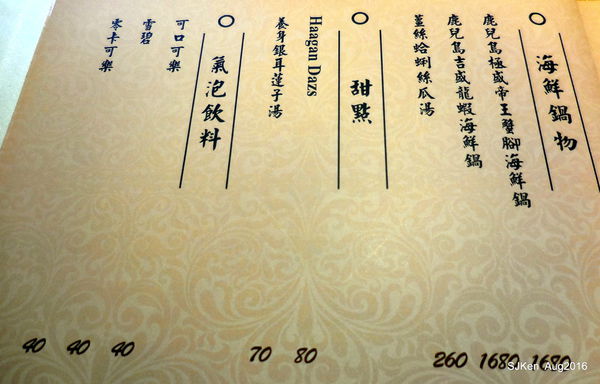 海鮮鍋物
鹿兒島極盛帝王蟹腳海鮮鍋
1680
鹿兒島吉盛龍蝦海鮮鍋
1680
薑絲蛤蜊絲瓜湯
260
甜點
Haagan Dazs
80
養身銀耳蓮子湯
70
氣泡飲料
可口可樂
40
雪碧
40
零卡可樂
40
SJKen Aug2016